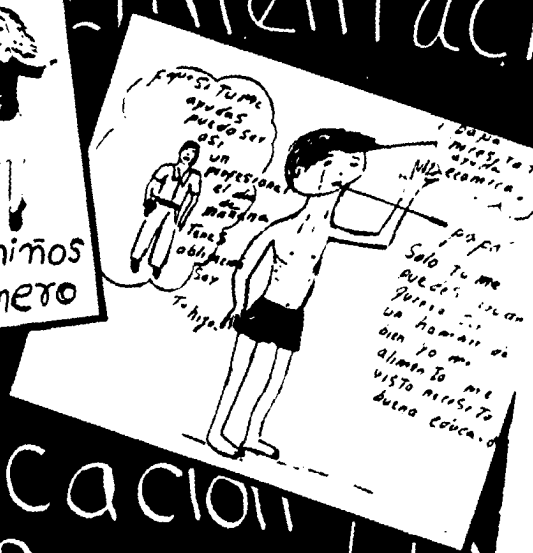 mentac
niños
nero
Tu me
ayudas
puedo ser
asi
un
profesional
el dia
mañana
Tienes
obligacion
Soy
Tu hijo
papa
necesito T
ayuda
ecomica
papa
Solo Tu me
puedes
quiero
un hombre de
bien yo me
alimento me
visto necesito
buena educa
cacion